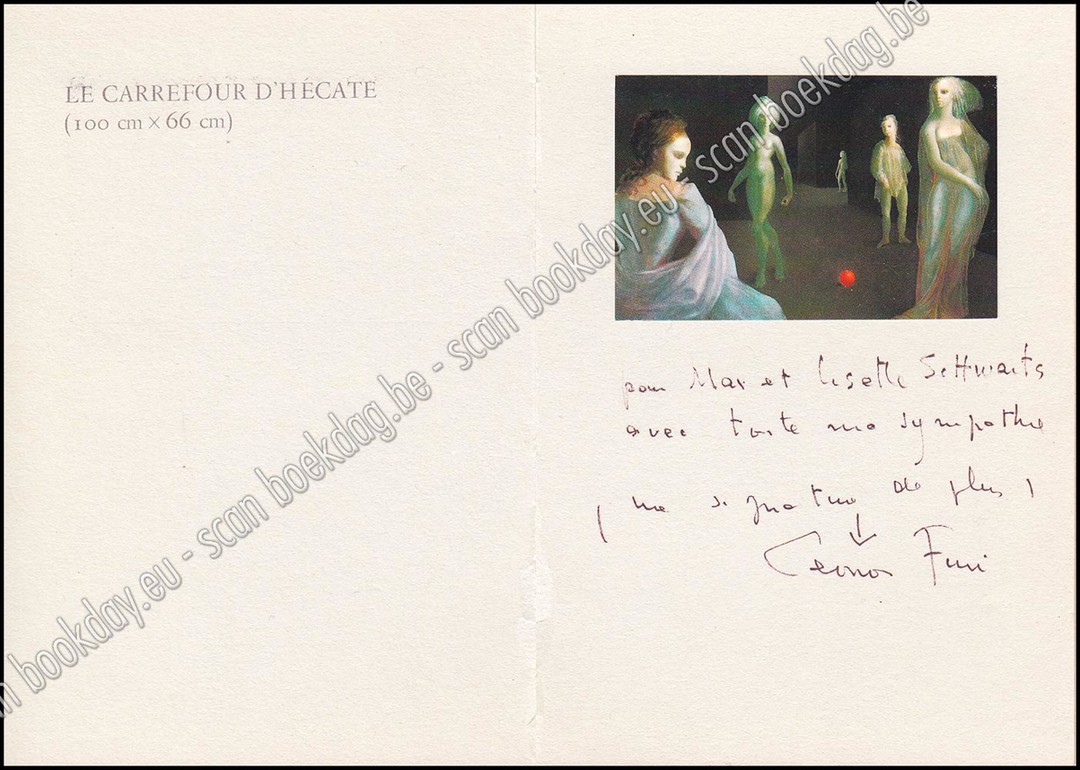 LE CARREFOUR D'HÉCATE
(100 cm × 66 cm)
pour Max et Liselle Schwarts
avec toute ma sympathie
(une signature de plus)
Leonor Fini
scan bookday.eu - scan boekdag.be - scan bookday.eu - scan boekdag.be